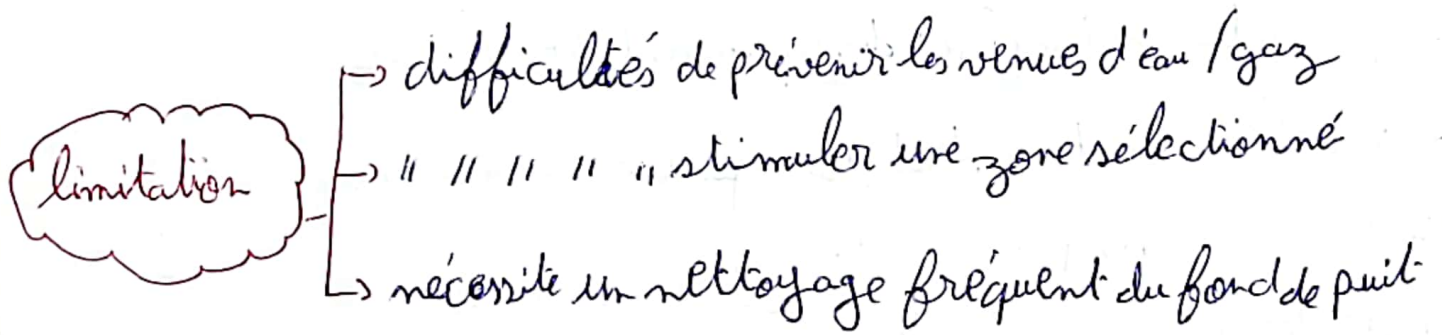 limitation
→ difficultés de prévenir les venues d'éau / gaz
→ " " " " " stimuler une zone sélectionné
→ nécessite un nettoyage fréquent du fond de puit